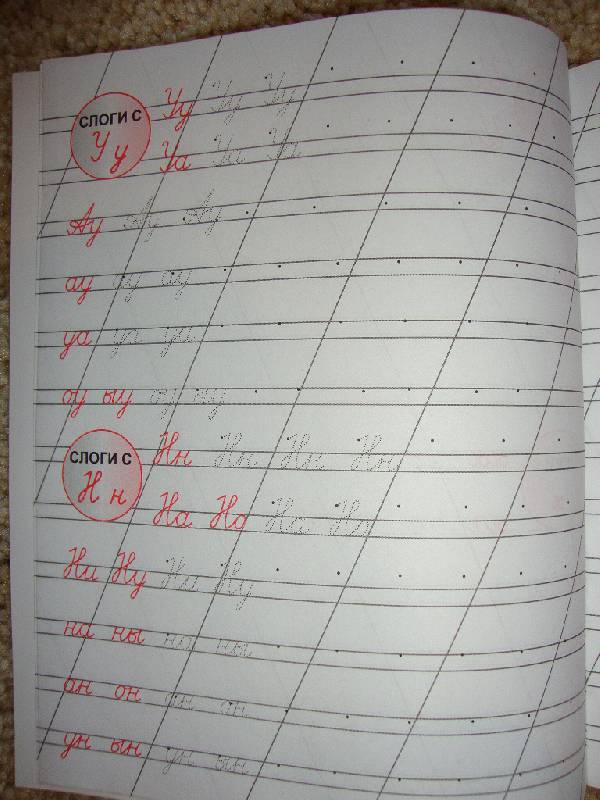 СЛОГИ С
У у
Уу Уу Уу
Уа Уа Уа
Ау Ау Ау
ау ау ау
уа уа уа
оу ыу оу ыу
СЛОГИ С
Н н
Нн Нн Нн Нн
На Но На Но
Ни Ну Ни Ну
на ны на ны
ан он ан он
ун ын ун ын